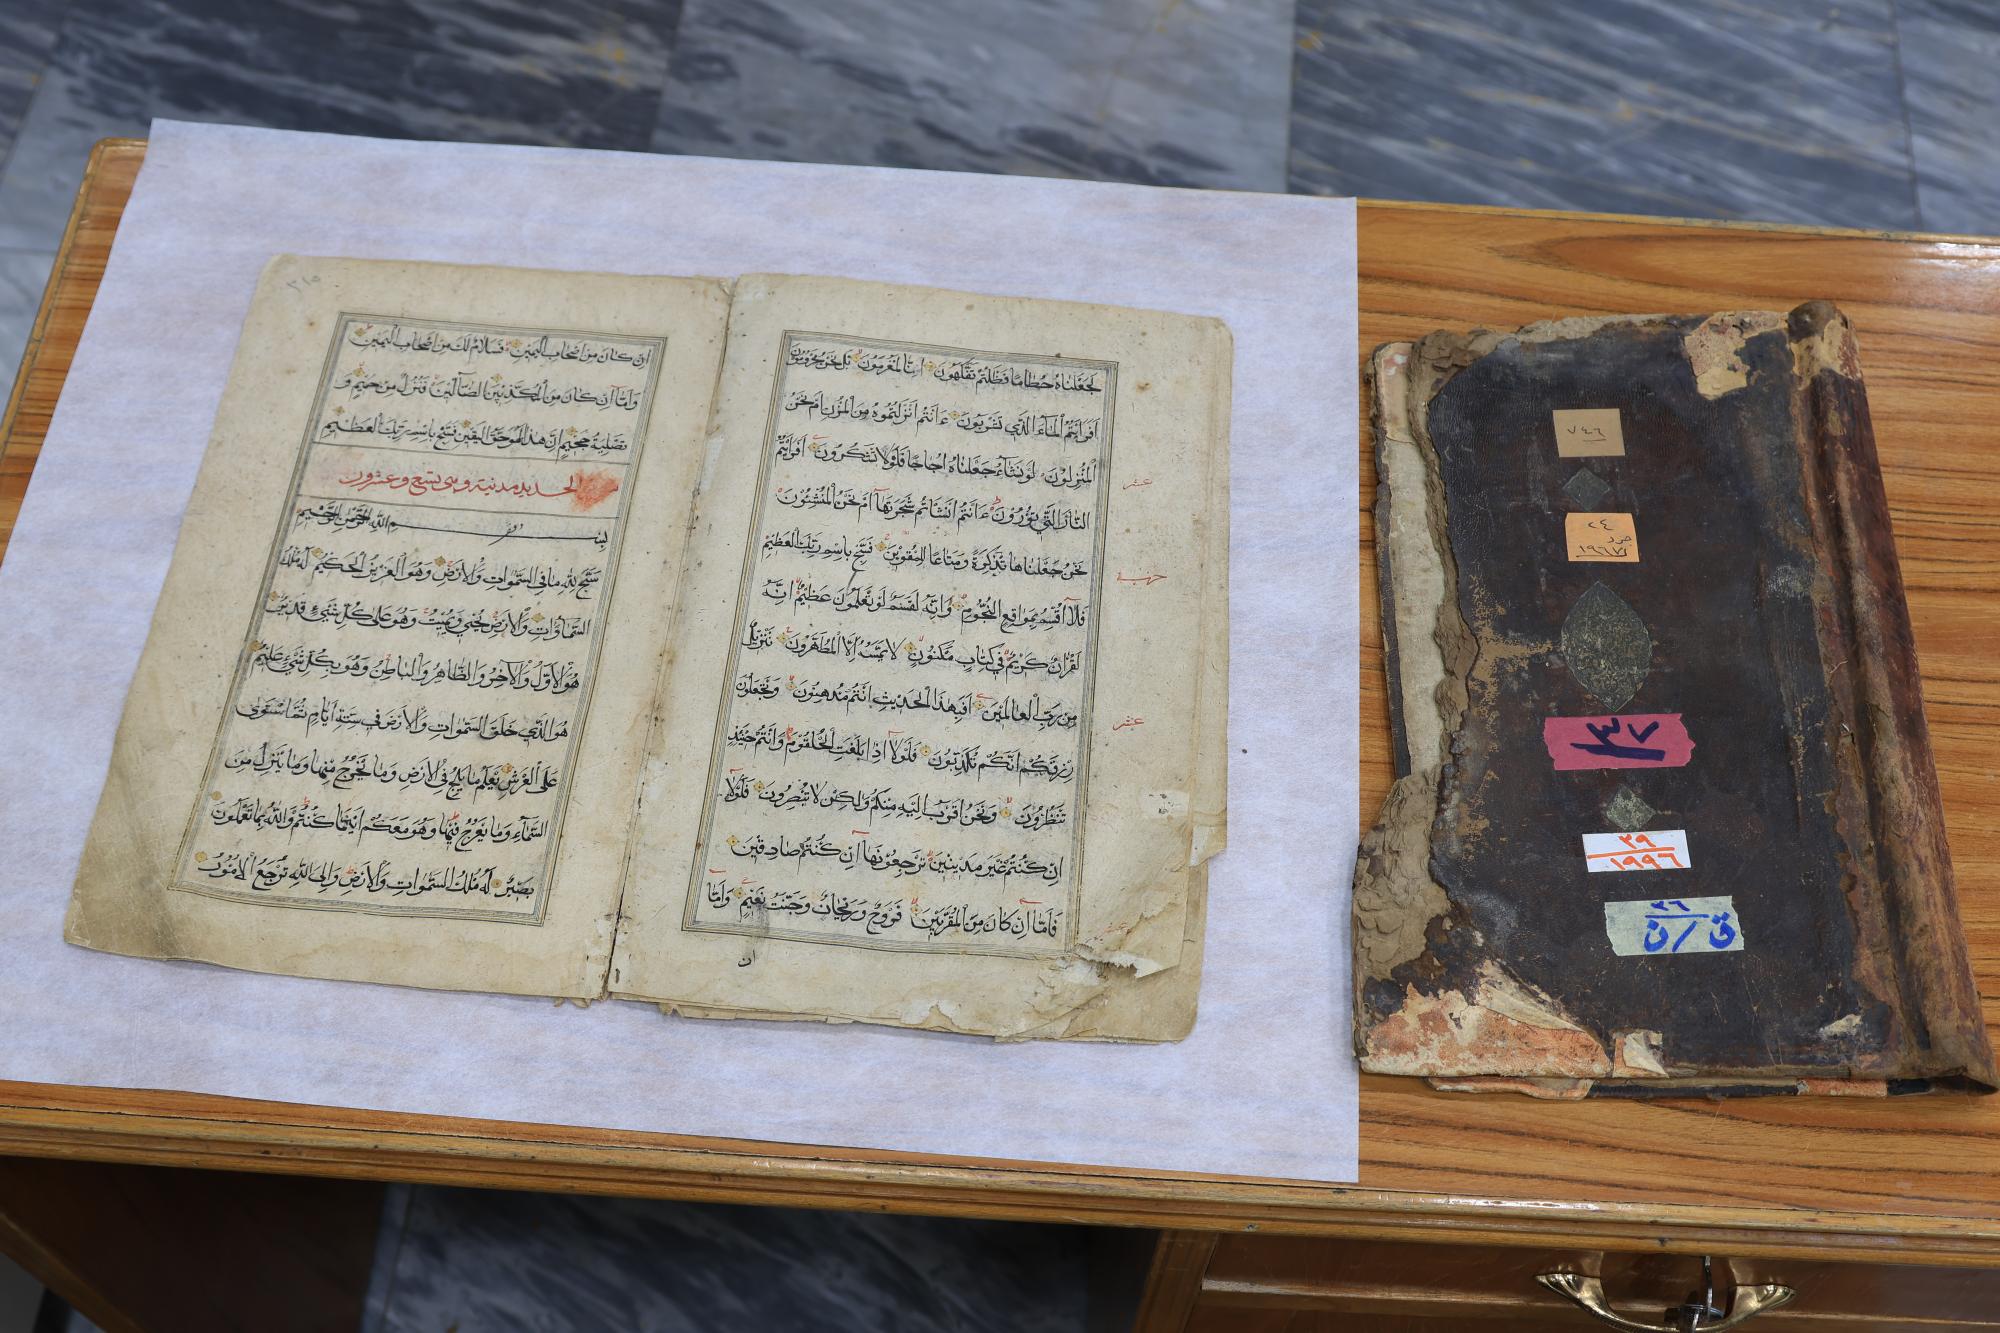 لجعلناه حطاما فظلتم تفكهون انا لمغرمون بل نحن محرومون
افرايتم الماء الذي تشربون ءانتم انزلتموه من المزن ام نحن
المنزلون لو نشاء جعلناه اجاجا فلولا تشكرون افرايتم
النار التي تورون ءانتم انشاتم شجرتها ام نحن المنشئون
نحن جعلناها تذكرة ومتاعا للمقوين فسبح باسم ربك العظيم
فلا اقسم بمواقع النجوم وانه لقسم لو تعلمون عظيم انه
لقران كريم في كتاب مكنون لا يمسه الا المطهرون تنزيل
من رب العالمين افبهذا الحديث انتم مدهنون وتجعلون
رزقكم انكم تكذبون فلولا اذا بلغت الحلقوم وانتم حينئذ
تنظرون ونحن اقرب اليه منكم ولكن لا تبصرون فلولا
ان كنتم غير مدينين ترجعونها ان كنتم صادقين
فاما ان كان من المقربين فروح وريحان وجنت نعيم واما
ان
عشر
عشر
٣١٥
ان كان من اصحاب اليمين فسلام لك من اصحاب اليمين
واما ان كان من المكذبين الضالين فنزل من حميم و
تصلية جحيم ان هذا لهو حق اليقين فسبح باسم ربك العظيم
الحديد مدنية وهي تسع وعشرون
بسم الله الرحمن الرحيم
سبح لله ما في السموات والارض وهو العزيز الحكيم له ملك
السماوات والارض يحيي ويميت وهو على كل شيء قدير
هو الاول والاخر والظاهر والباطن وهو بكل شيء عليم
هو الذي خلق السموات والارض في ستة ايام ثم استوى
على العرش يعلم ما يلج في الارض وما يخرج منها وما ينزل من
السماء وما يعرج فيها وهو معكم اينما كنتم والله بما تعملون
بصير له ملك السموات والارض والى الله ترجع الامور
٧٤٦
٢٤
١٩٦٧
٣٧
٢٩
١٩٩٦
٢٦
ق / ن